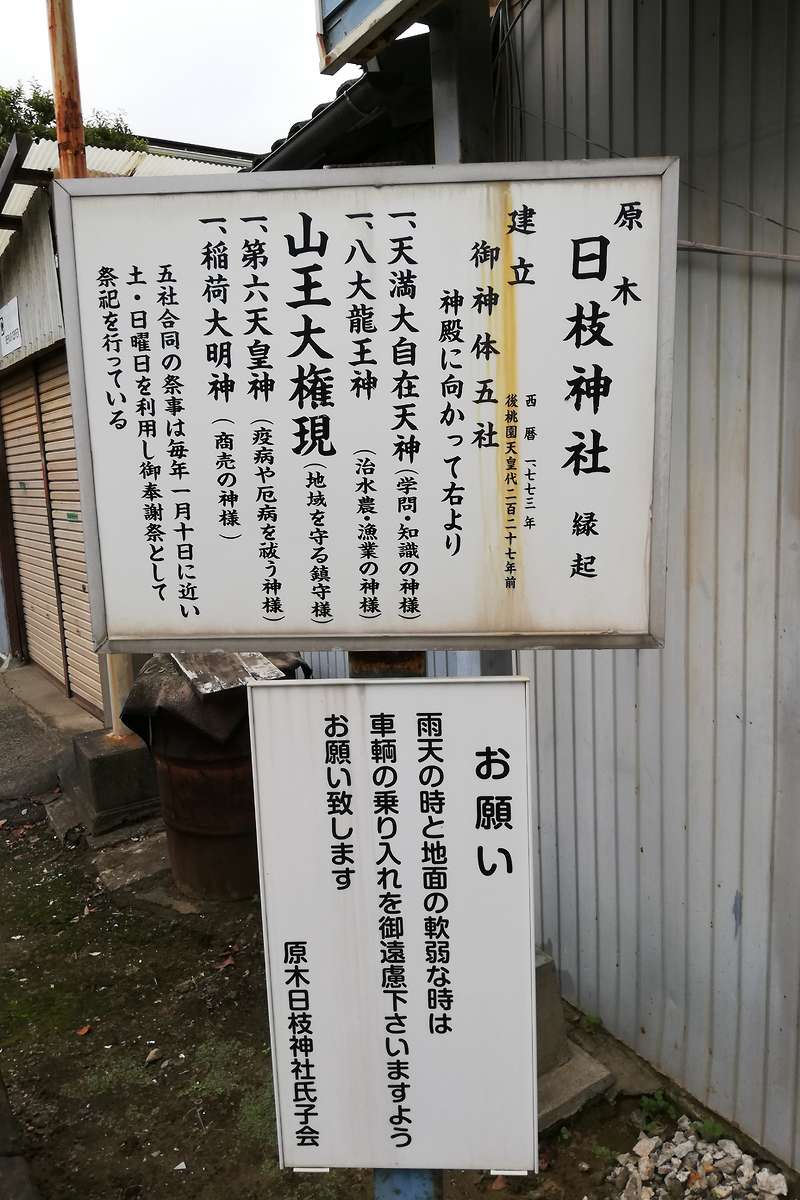 原木
日枝神社 縁起
建立
西暦 一、七七三年
後桃園天皇代二百二十七年前
御神体五社
神殿に向かって右より
一、天満大自在天神（学問・知識の神様）
一、八大龍王神（治水農・漁業の神様）
山王大権現（地域を守る鎮守様）
一、第六天皇神（疫病や厄病を祓う神様）
一、稲荷大明神（商売の神様）
五社合同の祭事は毎年一月十日に近い
土・日曜日を利用し御奉謝祭として
祭祀を行っている
お願い
雨天の時と地面の軟弱な時は
車輌の乗り入れを御遠慮下さいますよう
お願い致します
原木日枝神社氏子会